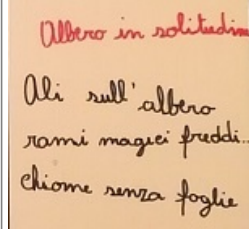 Albero in solitudin
Ali sull'albero
rami magici freddi...
chiome senza foglie